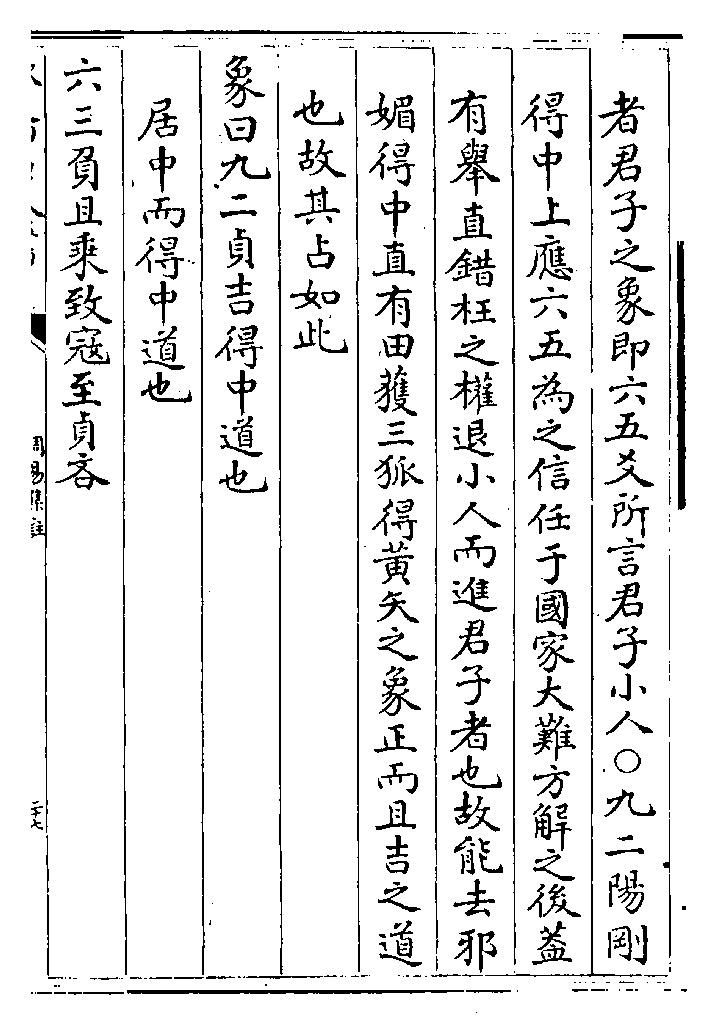 者君子之象即六五爻所言君子小人○九二陽剛
得中上應六五為之信任于國家大難方解之後蓋
有舉直錯枉之權退小人而進君子者也故能去邪
媚得中直有田獲三狐得黃矢之象正而且吉之道
也故其占如此
象曰九二貞吉得中道也
居中而得中道也
六三負且乘致寇至貞吝
周易集註
二十七